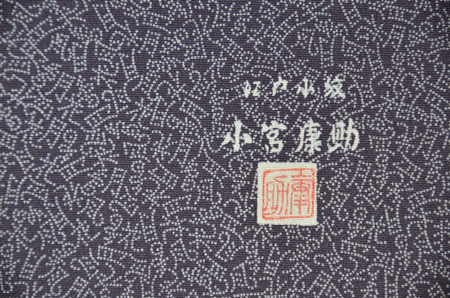 江戸小紋
小宮康助
康助